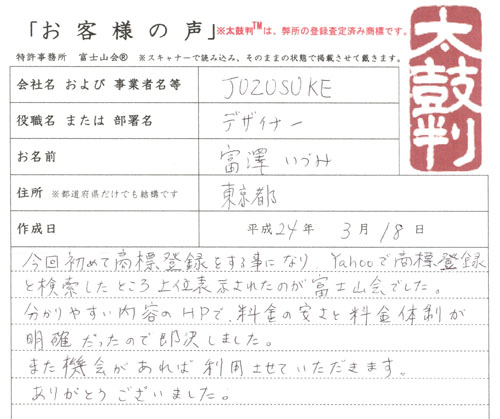 「お客様の声」※太鼓判™は、弊所の登録査定済み商標です。
特許事務所 富士山会® ※スキャナーで読み込み、そのままの状態で掲載させて戴きます。
太鼓判
会社名 および 事業者名等 JOZUSUKE
役職名 または 部署名 デザイナー
お名前 富澤 いづみ
住所 ※都道府県だけでも結構です 東京都
作成日 平成24年 3月 18日
今回初めて商標登録をする事になり Yahooで商標登録
と検索したところ上位表示されたのが富士山会でした。
分かりやすい内容のHPで、料金の安さと料金体制が
明確だったので即決しました。
また機会があれば利用させていただきます。
ありがとうございました。